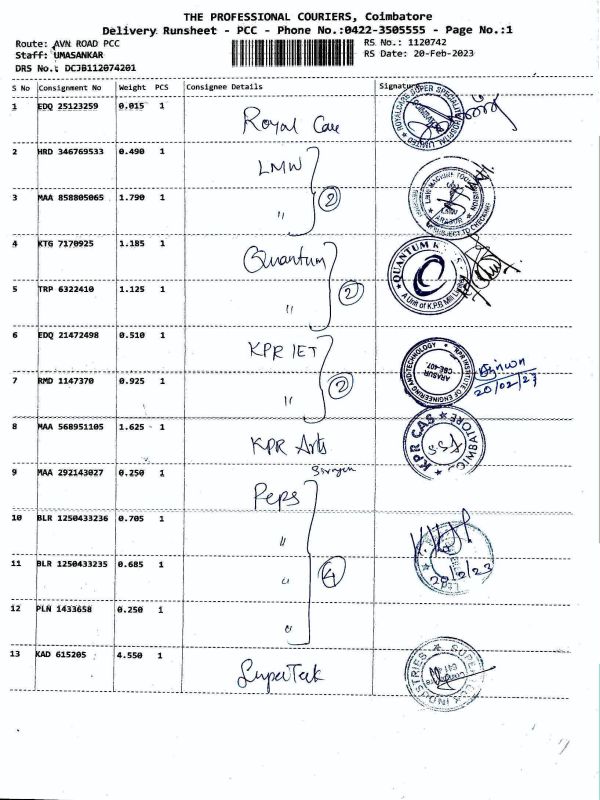 THE PROFESSIONAL COURIERS, Coimbatore
Delivery Runsheet - PCC - Phone No.:0422-3505555 - Page No.:1
Route: AVN ROAD PCC
RS No.: 1120742
Staff: UMASANKAR
RS Date: 20-Feb-2023
DRS No.: DCJB112074201
S No Consignment No Weight PCS Consignee Details Signature
1 EDQ 25123259 0.015 1 Royal Care
2 HRD 346769533 0.490 1 LMW
3 MAA 858805065 1.790 1 " 2
4 KTG 7170925 1.185 1 Quantum
5 TRP 6322410 1.125 1 " 2
6 EDQ 21472498 0.510 1 KPR IET
7 RMD 1147370 0.925 1 " 2
20/02/23
8 MAA 568951105 1.625 1 KPR Arts
KPR CAS
9 MAA 292143027 0.250 1 Peps
10 BLR 1250433236 0.705 1 "
11 BLR 1250433235 0.685 1 " 4
20/2/23
12 PLN 1433658 0.250 1 "
13 KAD 615205 4.550 1 SuperTek